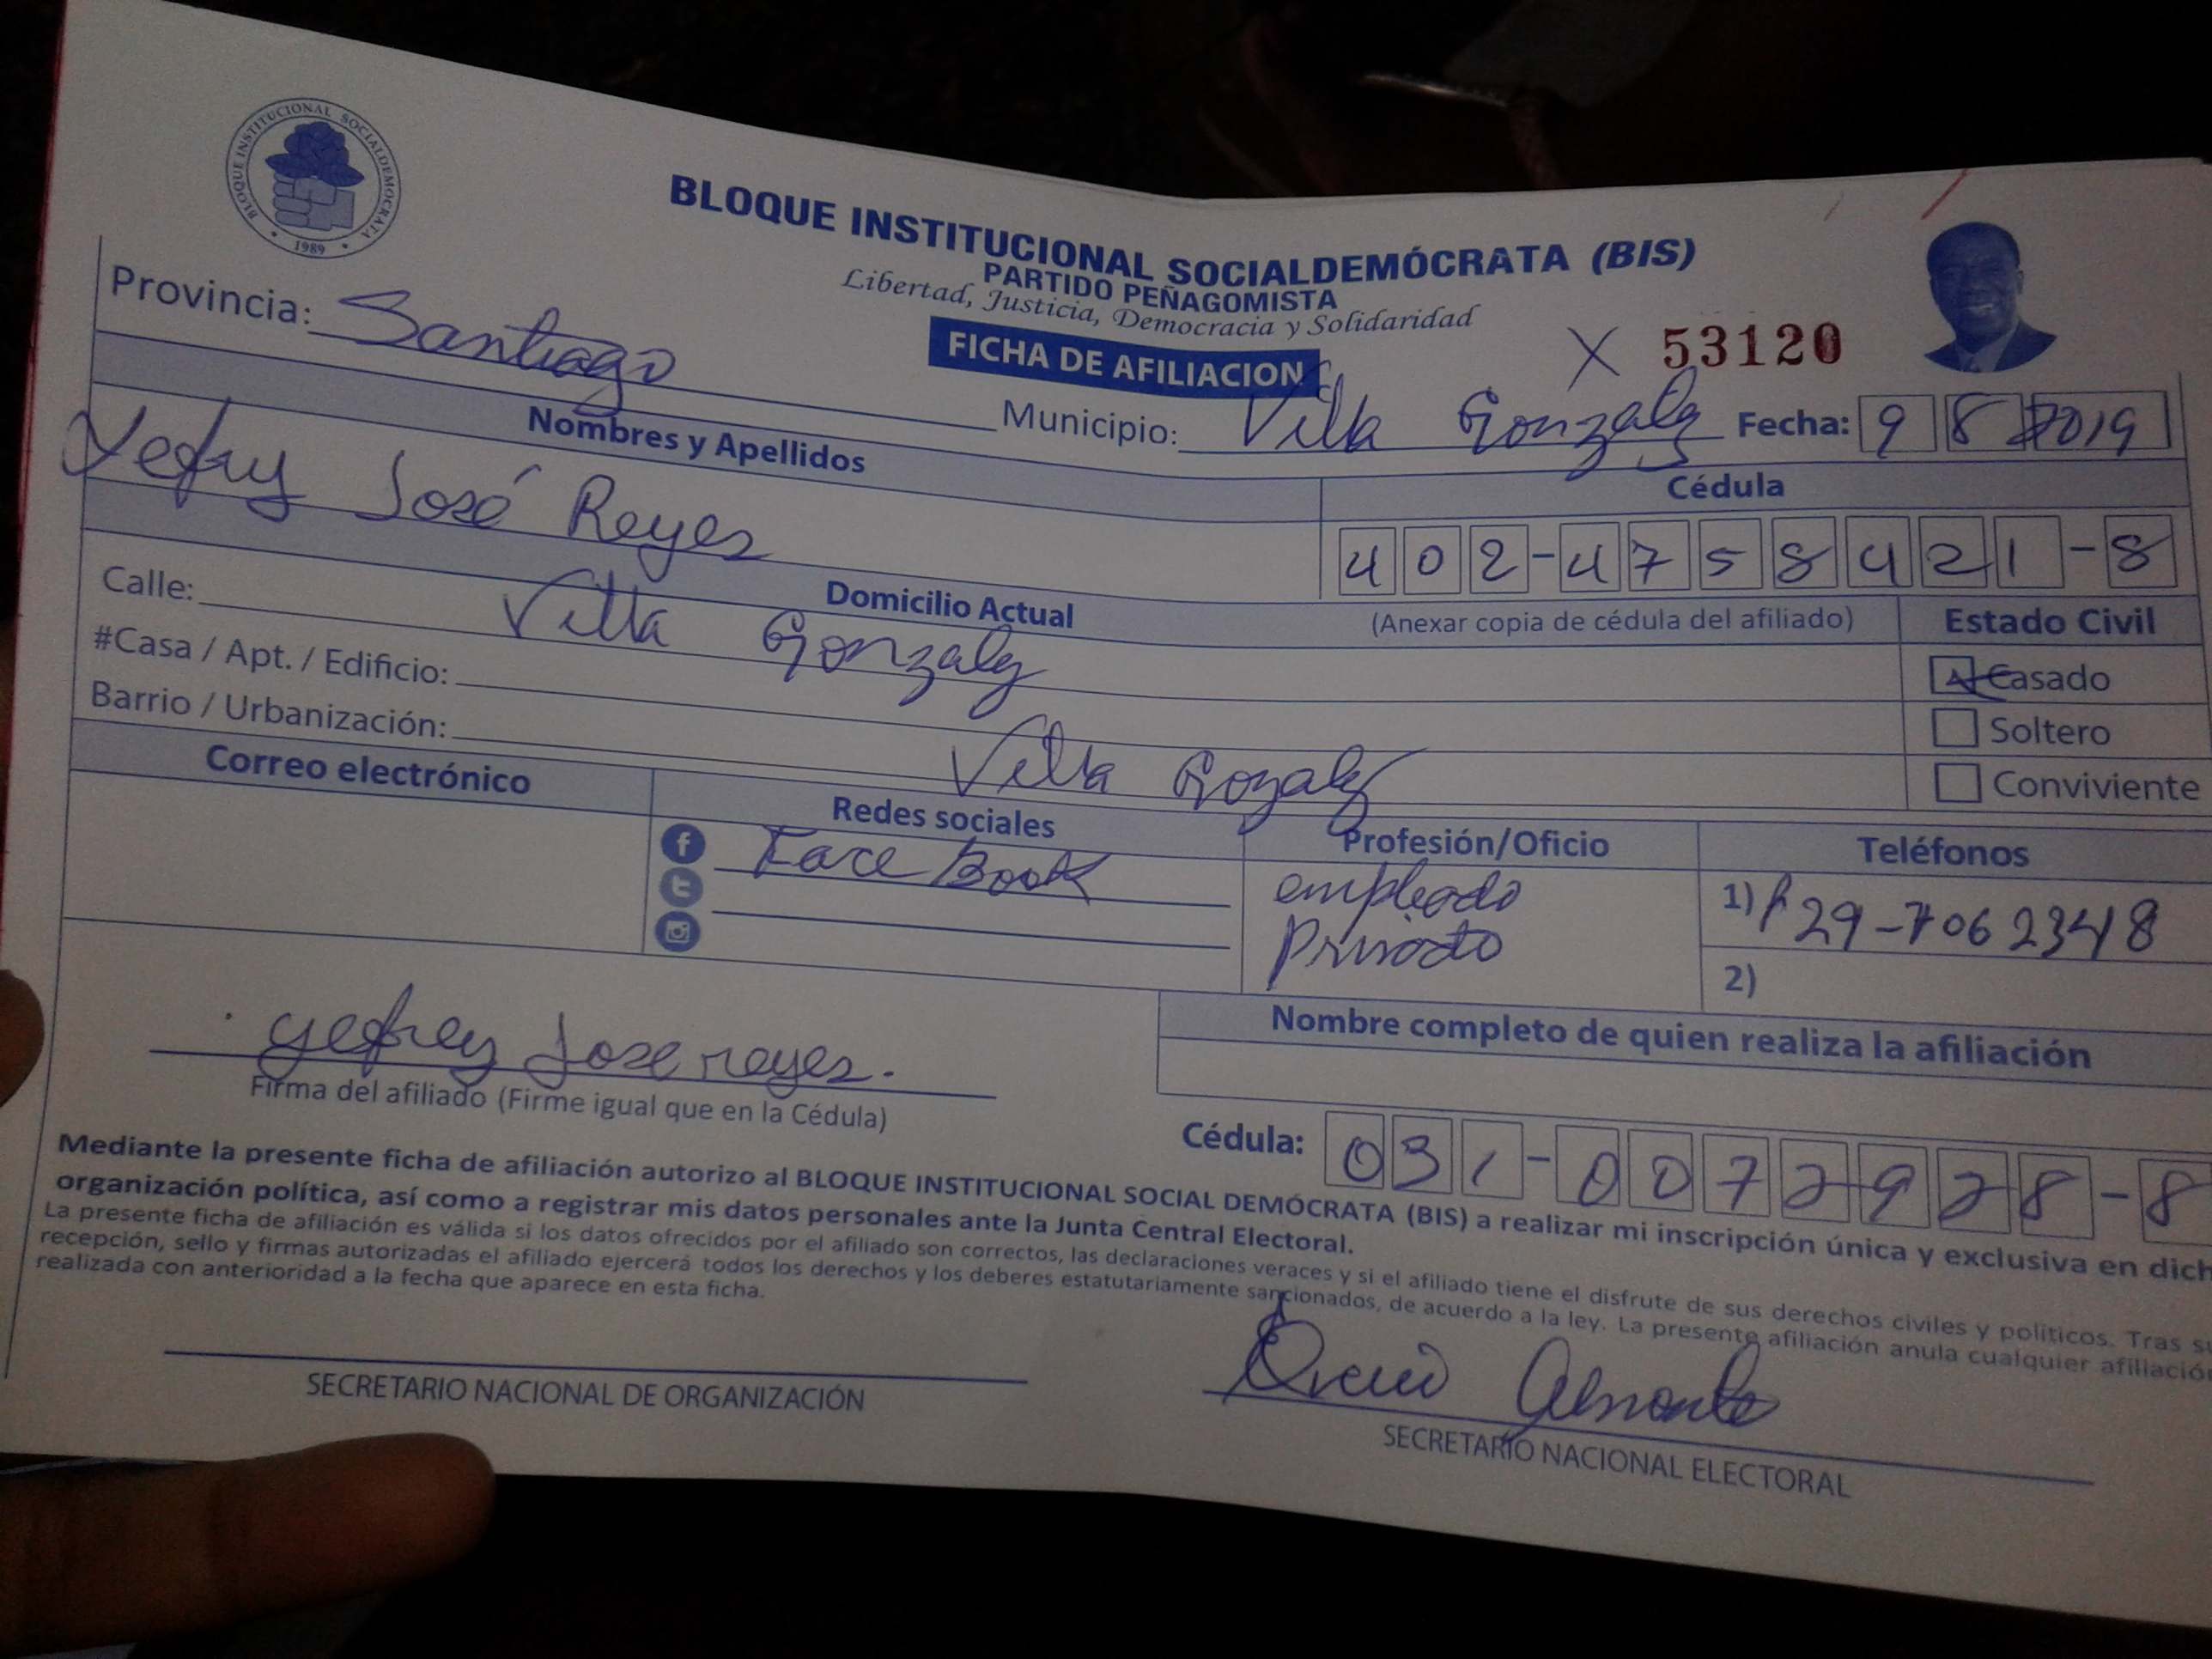 BLOQUE INSTITUCIONAL SOCIALDEMOCRATA
1989
BLOQUE INSTITUCIONAL SOCIALDEMÓCRATA (BIS)
PARTIDO PEÑAGOMISTA
Libertad, Justicia, Democracia y Solidaridad
FICHA DE AFILIACION
X 53120
Provincia: Santiago
Municipio: Villa Gonzalez
Fecha: 9 8 2019
Nombres y Apellidos
Yefry José Reyes
Cédula
402-4758421-8
(Anexar copia de cédula del afiliado)
Domicilio Actual
Calle: Villa Gonzalez
#Casa / Apt. / Edificio:
Barrio / Urbanización: Villa Gozalez
Estado Civil
Casado
Soltero
Conviviente
Correo electrónico
Redes sociales
Face Book
Profesión/Oficio
empleado
Privado
Teléfonos
1) 829-7062348
2)
yefrey Jose reyes.
Firma del afiliado (Firme igual que en la Cédula)
Nombre completo de quien realiza la afiliación
Cédula: 031-0072928-8
Mediante la presente ficha de afiliación autorizo al BLOQUE INSTITUCIONAL SOCIAL DEMÓCRATA (BIS) a realizar mi inscripción única y exclusiva en dich
organización política, así como a registrar mis datos personales ante la Junta Central Electoral.
La presente ficha de afiliación es válida si los datos ofrecidos por el afiliado son correctos, las declaraciones veraces y si el afiliado tiene el disfrute de sus derechos civiles y políticos. Tras su
recepción, sello y firmas autorizadas el afiliado ejercerá todos los derechos y los deberes estatutariamente sancionados, de acuerdo a la ley. La presente afiliación anula cualquier afiliación
realizada con anterioridad a la fecha que aparece en esta ficha.
SECRETARIO NACIONAL DE ORGANIZACIÓN
Almonte
SECRETARIO NACIONAL ELECTORAL